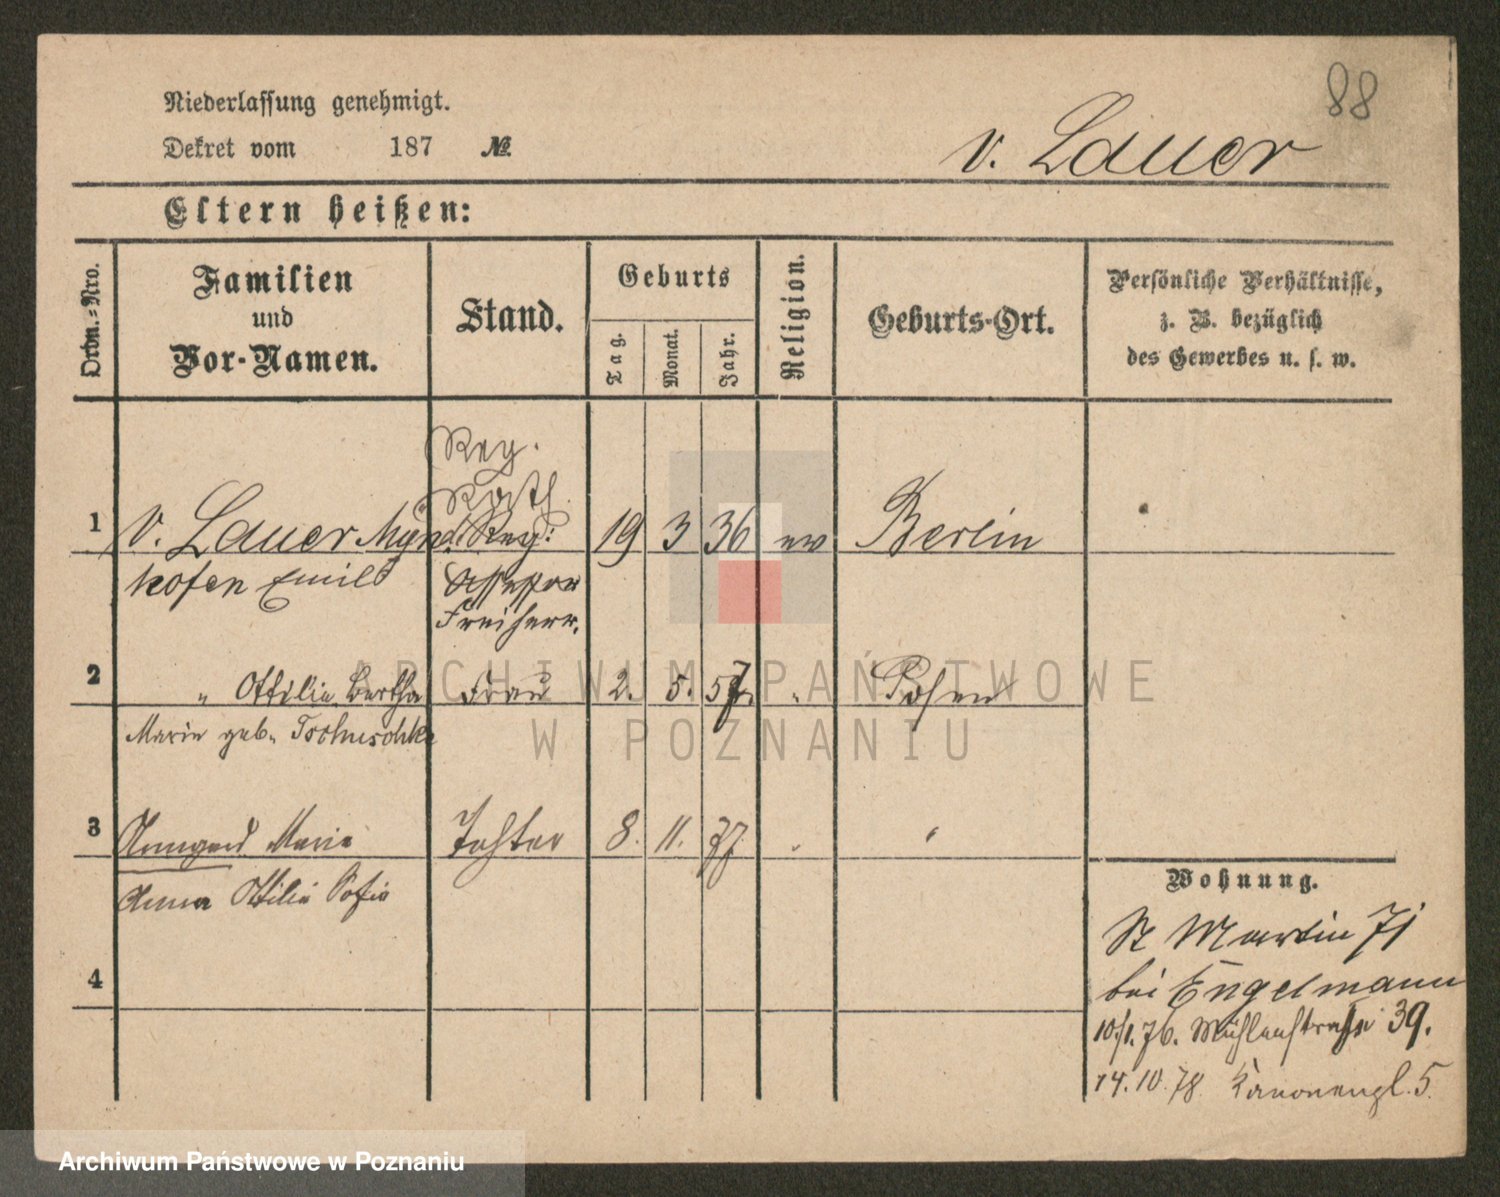 88
Niederlassung genehmigt.
Dekret vom 187 №
v. Lauer
Eltern heißen:
Ordn.-Nro.
Familien und Vor-Namen.
Stand.
Geburts
Tag.
Monat.
Jahr.
Religion.
Geburts-Ort.
Persönliche Verhältnisse,
z. B. bezüglich
des Gewerbes u. s. w.
Reg.
Rath
1 v. Lauer Münch Reg: 19 3 36 ev Berlin
hofen Emil Assessor
Freiherr.
2 " Ottilie Bertha Frau 2. 5. 57. " Posen
Marie geb. Tschuschke
3 Irmgard Marie Tochter 8. 11. 77. " "
Anna Ottilie Sofie
4
Wohnung.
St Martin 71
bei Engelmann
10./1. 76. Mühlenstraße 39.
14. 10. 78 Kanonenpl. 5.
ARCHIWUM PAŃSTWOWE
W POZNANIU
Archiwum Państwowe w Poznaniu